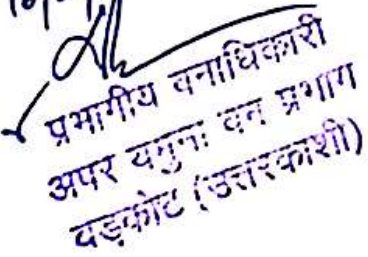 प्रभागीय वनाधिकारी
अपर यमुना वन प्रभाग
वड़कोट (उत्तरकाशी)